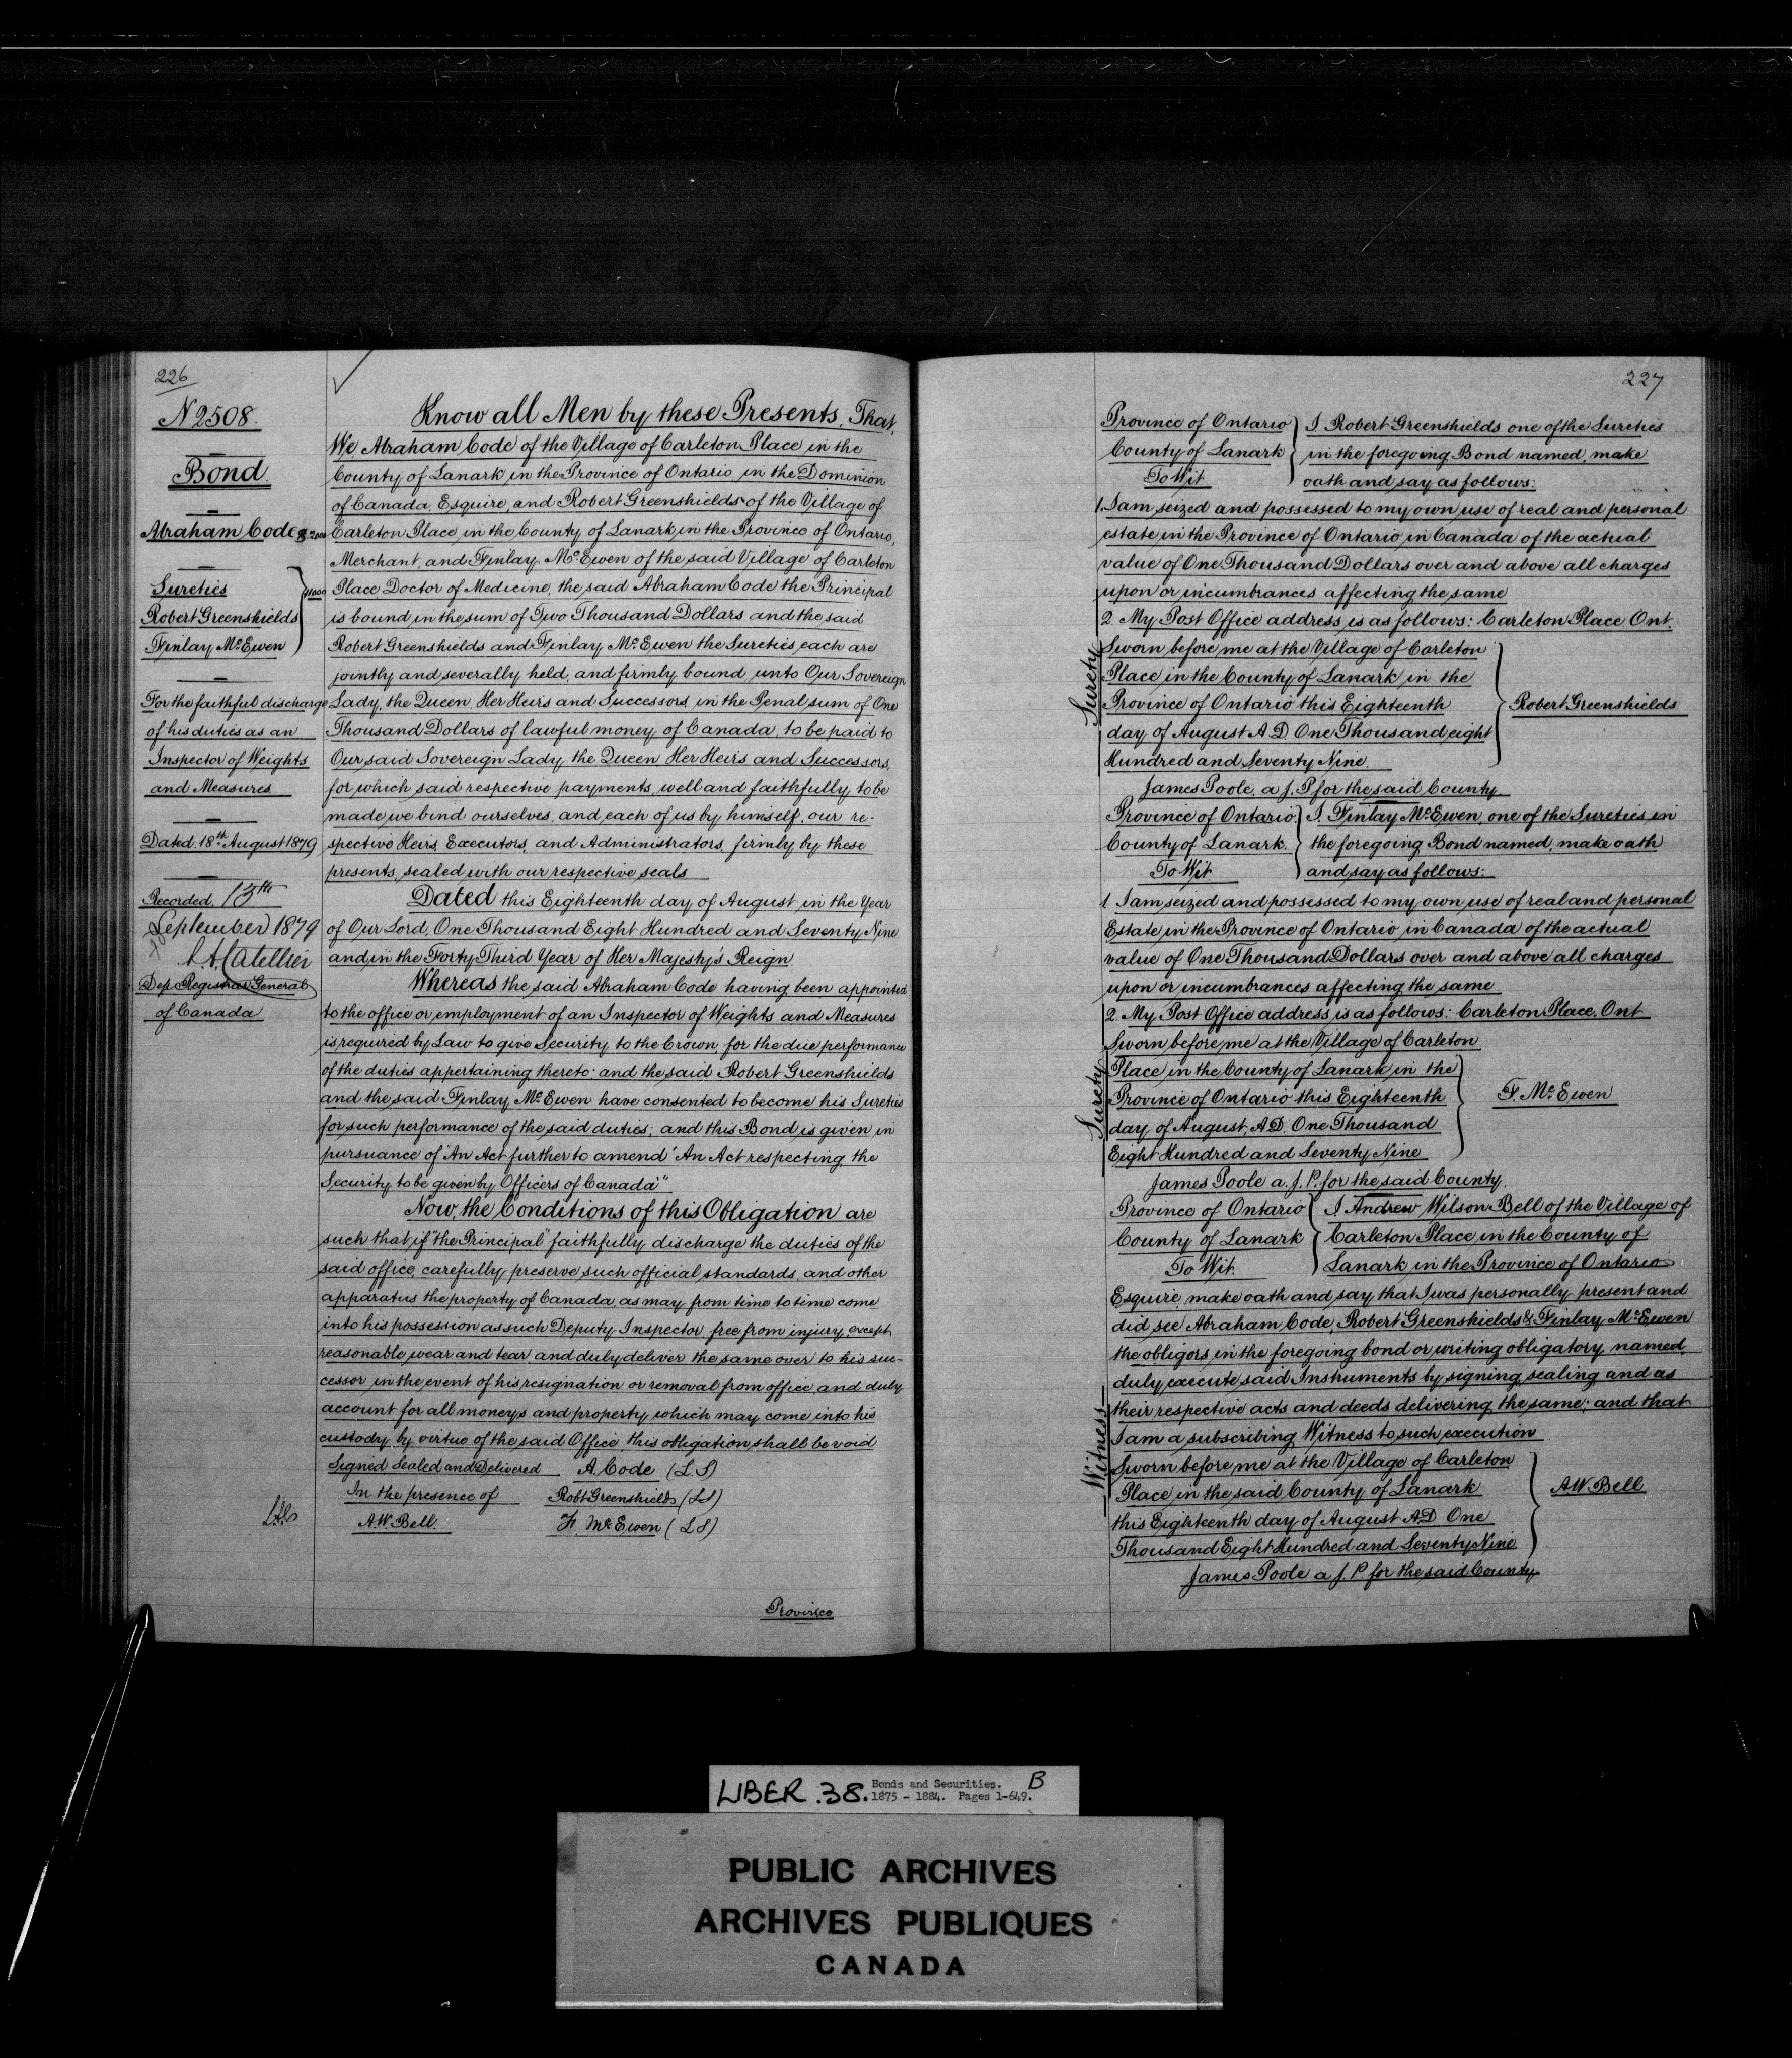 226
N 2508.
Bond.
Abraham Code $2000
Sureties
Robert Greenshields
Finlay McEwen
$1000
For the faithful discharge
of his duties as an
Inspector of Weights
and Measures
Dated 18th August 1879
Recorded, 13th
September 1879
Dep. Registrar General
of Canada
Know all Men by these Presents, That,
We, Abraham Code of the Village of Carleton Place in the
County of Lanark in the Province of Ontario in the Dominion
of Canada, Esquire, and Robert Greenshields of the Village of
Carleton Place in the County of Lanark in the Province of Ontario,
Merchant, and Finlay McEwen of the said Village of Carleton
Place Doctor of Medicine, the said Abraham Code the Principal
is bound in the sum of Two Thousand Dollars and the said
Robert Greenshields and Finlay McEwen the Sureties, each are
jointly and severally held, and firmly bound unto Our Sovereign
Lady, the Queen, Her Heirs and Successors in the Penal sum of One
Thousand Dollars of lawful money of Canada, to be paid to
Our said Sovereign Lady the Queen Her Heirs and Successors,
for which said respective payments, well and faithfully to be
made, we bind ourselves, and each of us by himself, our re-
spective Heirs, Executors, and Administrators, firmly by these
presents, sealed with our respective seals
Dated this Eighteenth day of August in the Year
of Our Lord, One Thousand Eight Hundred and Seventy Nine
and in the Forty Third Year of Her Majesty's Reign.
Whereas the said Abraham Code having been appointed
to the office or employment of an Inspector of Weights and Measures
is required by Law to give Security to the Crown for the due performance
of the duties appertaining thereto; and the said Robert Greenshields
and the said Finlay McEwen have consented to become his Sureties
for such performance of the said duties; and this Bond is given in
pursuance of "An Act further to amend 'An Act respecting the
Security to be given by Officers of Canada'"
Now, the Conditions of this Obligation are
such that if "the Principal" faithfully discharge the duties of the
said office, carefully preserve such official standards, and other
apparatus the property of Canada, as may from time to time come
into his possession as such Deputy Inspector free from injury, except
reasonable wear and tear, and duly deliver the same over to his suc-
cessor in the event of his resignation or removal from office, and duly
account for all moneys and property which may come into his
custody by virtue of the said Office this obligation shall be void
Signed Sealed and Delivered A. Code (L S)
In the presence of Robt Greenshields (L S)
A.W. Bell. F. McEwen (L S)
Province
227
Province of Ontario I Robert Greenshields one of the Sureties
County of Lanark in the foregoing Bond named, make
To Wit oath and say as follows:
1. I am seized and possessed to my own use of real and personal
estate in the Province of Ontario in Canada of the actual
value of One Thousand Dollars over and above all charges
upon or incumbrances affecting the same
2. My Post Office address is as follows: Carleton Place Ont.
Surety
Sworn before me at the Village of Carleton
Place in the County of Lanark in the
Province of Ontario this Eighteenth Robert Greenshields
day of August A.D. One Thousand eight
Hundred and Seventy Nine.
James Poole, a J. P for the said County.
Province of Ontario I, Finlay McEwen, one of the Sureties in
County of Lanark. the foregoing Bond named, make oath
To Wit. and say as follows:
1 I am seized and possessed to my own use of real and personal
Estate in the Province of Ontario in Canada of the actual
value of One Thousand Dollars over and above all charges
upon or incumbrances affecting the same
2. My Post Office address is as follows: Carleton Place, Ont
Surety
Sworn before me at the Village of Carleton
Place in the County of Lanark in the
Province of Ontario this Eighteenth F. McEwen
day of August, A.D. One Thousand
Eight Hundred and Seventy Nine
James Poole a. J. P. for the said County.
Province of Ontario I Andrew Wilson Bell of the Village of
County of Lanark Carleton Place in the County of
To Wit. Lanark in the Province of Ontario
Esquire, make oath and say, that I was personally present and
did see Abraham Code, Robert Greenshields & Finlay McEwen
the obligors in the foregoing bond or writing obligatory named,
duly execute said Instruments by signing, sealing and as
their respective acts and deeds delivering the same; and that
I am a subscribing Witness to such execution
Witness
Sworn before me at the Village of Carleton
Place in the said County of Lanark A.W. Bell
this Eighteenth day of August A.D One
Thousand Eight Hundred and Seventy Nine
James Poole a J. P. for the said County
LIBER. 38. Bonds and Securities. B
1875 - 1884. Pages 1-649.
PUBLIC ARCHIVES
ARCHIVES PUBLIQUES
CANADA